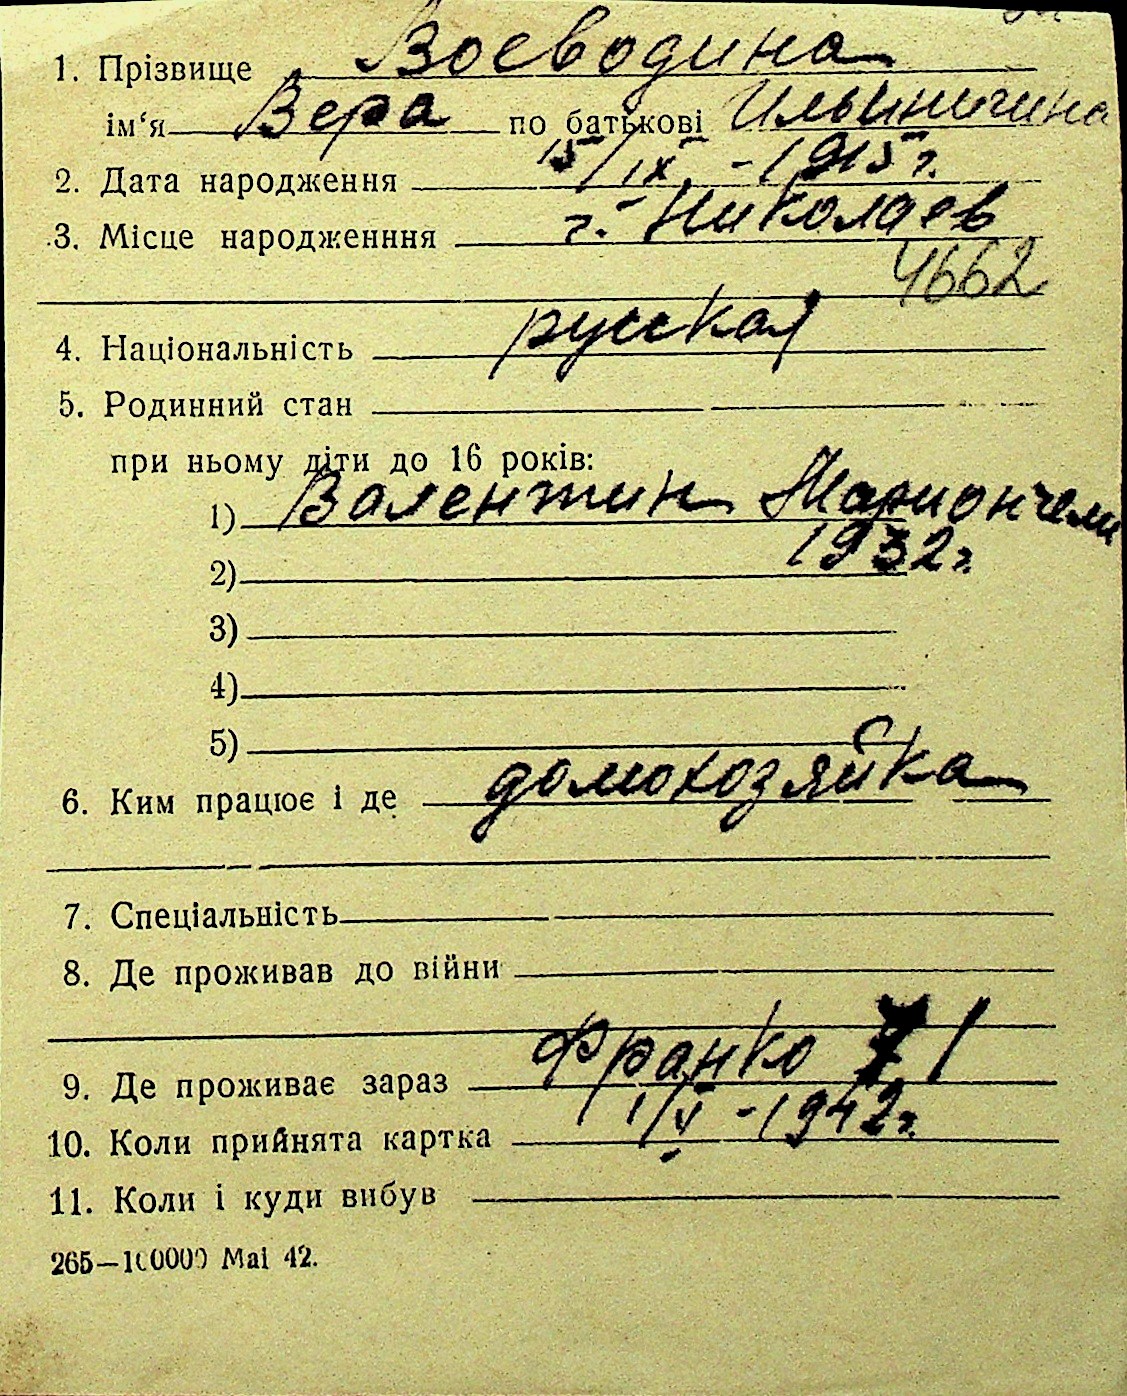 1. Прізвище Воеводина
ім'я Вера по батькові Ильиничина
2. Дата народження 15/IX - 1915 г.
3. Місце народженння г. Николаев
4662
4. Національність русская
5. Родинний стан
при ньому діти до 16 років:
1) Валентин
1932 г.
2)
3)
4)
5)
6. Ким працює і де домохозяйка
7. Спеціальність
8. Де проживав до війни
9. Де проживає зараз Франко 1
10. Коли прийнята картка 1/V - 1942 г.
11. Коли і куди вибув
265—100000 Mai 42.